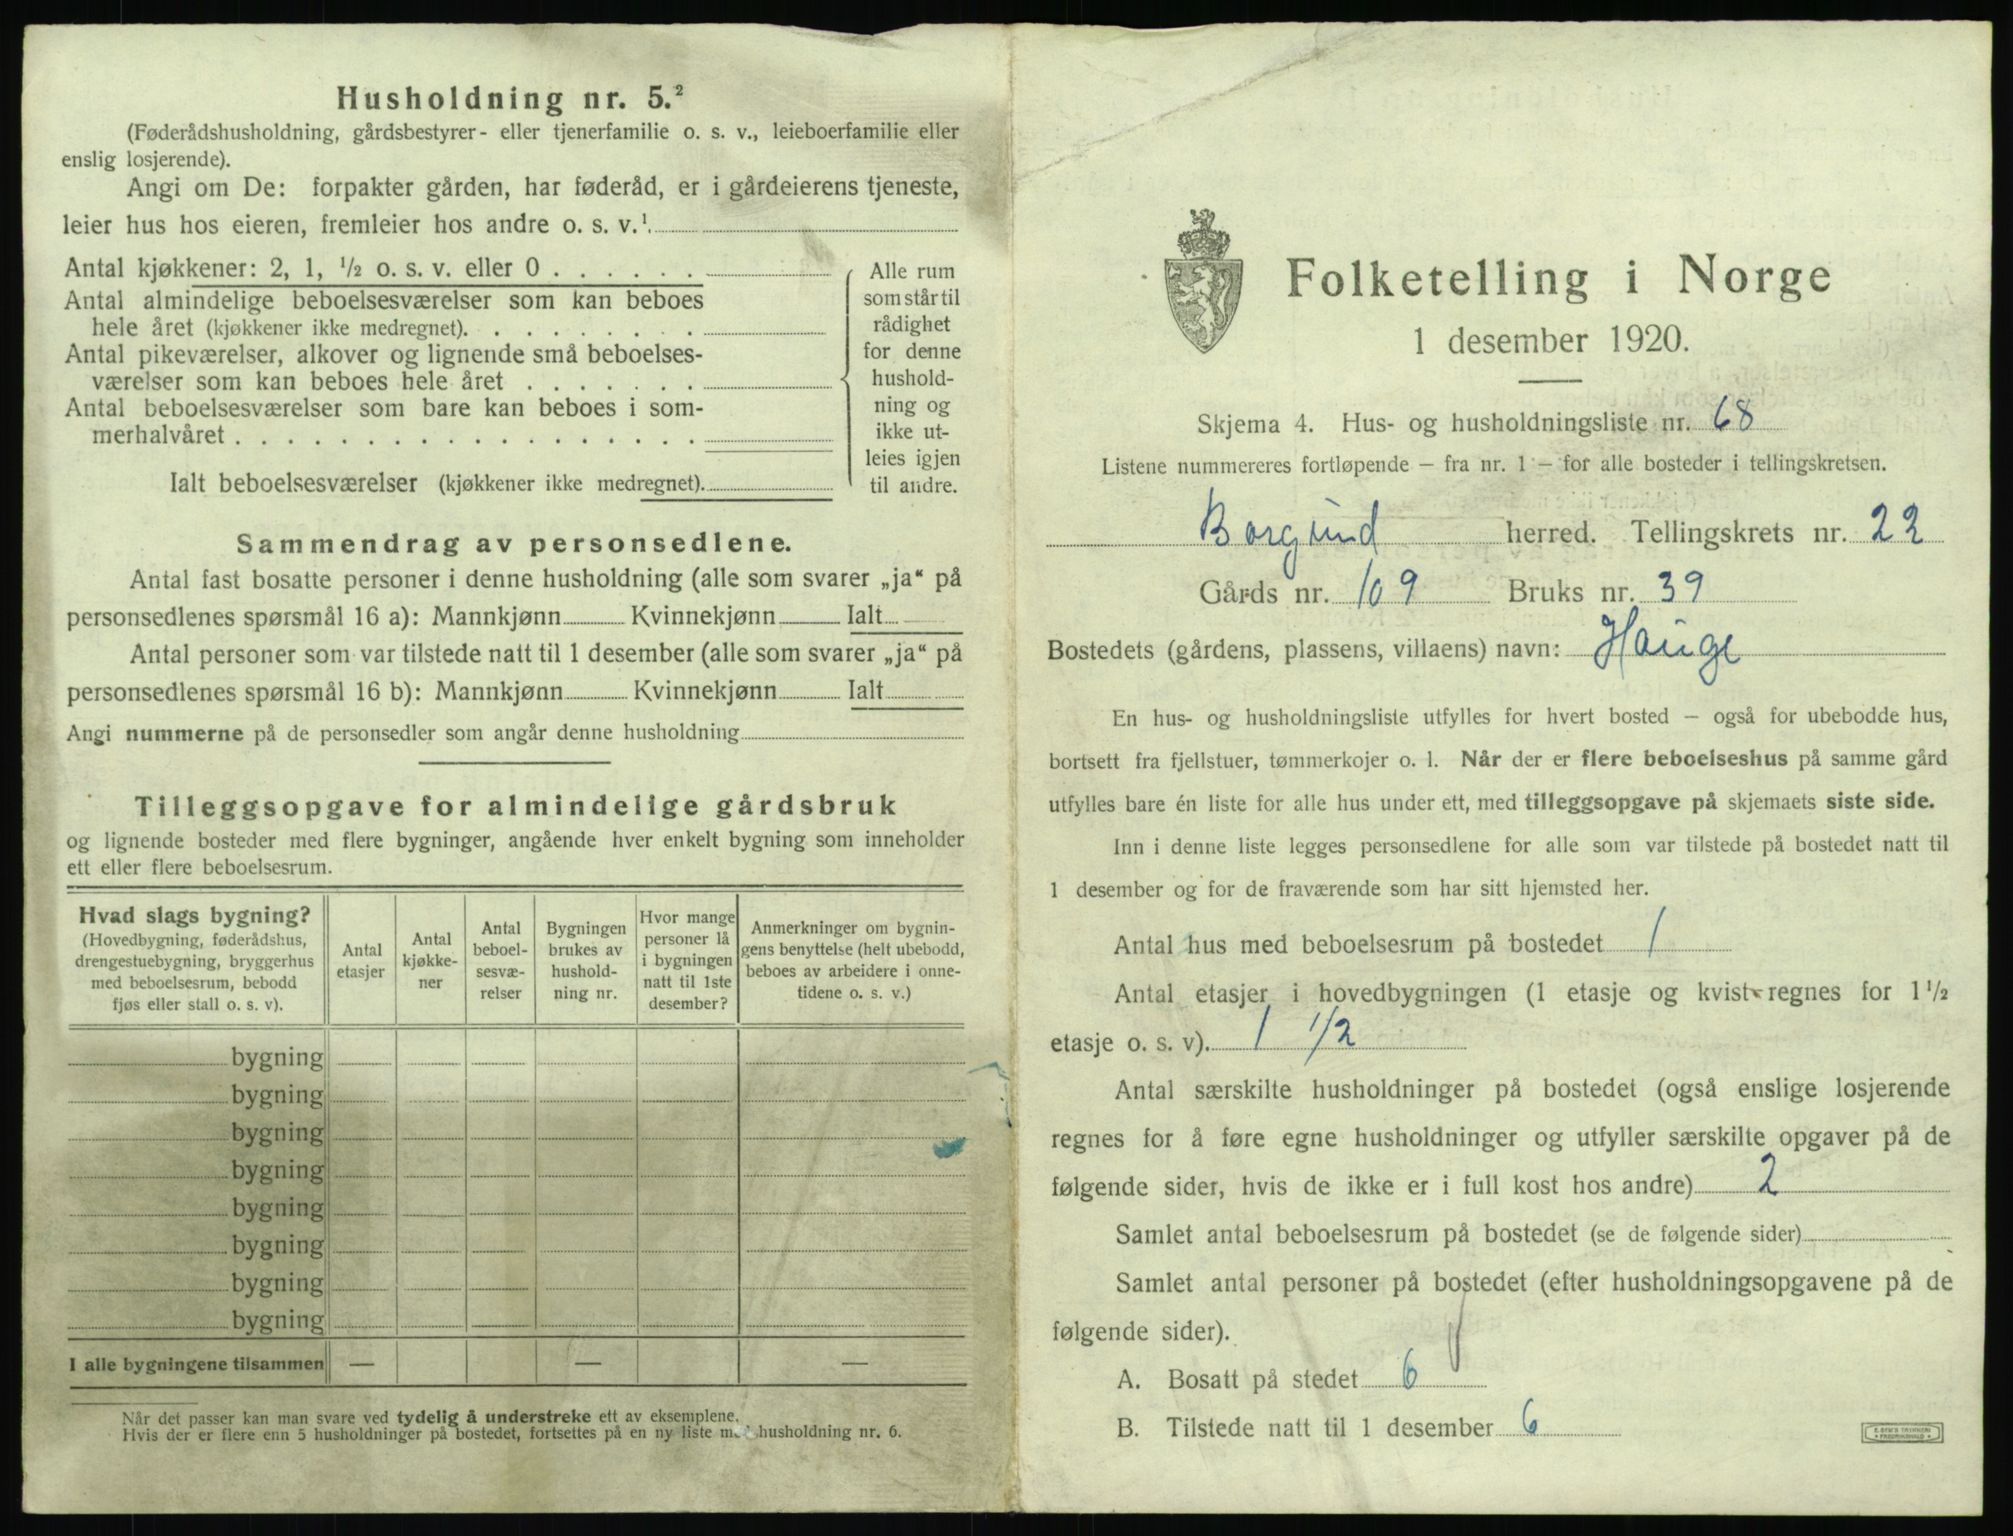 Husholdning nr. 5.²
(Føderådshusholdning, gårdsbestyrer- eller tjenerfamilie o. s. v., leieboerfamilie eller
enslig losjerende).
Angi om De: forpakter gården, har føderåd, er i gårdeierens tjeneste,
leier hus hos eieren, fremleier hos andre o. s. v.¹
Antal kjøkkener: 2, 1, ½ o. s. v. eller 0 . . . . . .
Antal almindelige beboelsesværelser som kan beboes
hele året (kjøkkener ikke medregnet). . . . . . . . .
Antal pikeværelser, alkover og lignende små beboelses-
værelser som kan beboes hele året . . . . . . .
Antal beboelsesværelser som bare kan beboes i som-
merhalvåret . . . . . . . . . . . . . . . . . .
Ialt beboelsesværelser (kjøkkener ikke medregnet).
Alle rum
som står til
rådighet
for denne
hushold-
ning og
ikke ut-
leies igjen
til andre.
Sammendrag av personsedlene.
Antal fast bosatte personer i denne husholdning (alle som svarer „ja“ på
personsedlenes spørsmål 16 a): Mannkjønn Kvinnekjønn Ialt
Antal personer som var tilstede natt til 1 desember (alle som svarer „ja“ på
personsedlenes spørsmål 16 b): Mannkjønn Kvinnekjønn Ialt
Angi nummerne på de personsedler som angår denne husholdning
Tilleggsopgave for almindelige gårdsbruk
og lignende bosteder med flere bygninger, angående hver enkelt bygning som inneholder
ett eller flere beboelsesrum.
Hvad slags bygning?
(Hovedbygning, føderådshus,
drengestuebygning, bryggerhus
med beboelsesrum, bebodd
fjøs eller stall o. s. v).
Antal
etasjer
Antal
kjøkke-
ner
Antal
beboel-
sesvæ-
relser
Bygningen
brukes av
hushold-
ning nr.
Hvor mange
personer lå
i bygningen
natt til 1ste
desember?
Anmerkninger om bygnin-
gens benyttelse (helt ubebodd,
beboes av arbeidere i onne-
tidene o. s. v.)
bygning
bygning
bygning
bygning
bygning
bygning
bygning
bygning
I alle bygningene tilsammen — — —
Når det passer kan man svare ved tydelig å understreke ett av eksemplene.
Hvis der er flere enn 5 husholdninger på bostedet, fortsettes på en ny liste med husholdning nr. 6.
Folketelling i Norge
1 desember 1920.
Skjema 4. Hus- og husholdningsliste nr. 68
Listene nummereres fortløpende — fra nr. 1 — for alle bosteder i tellingskretsen.
Borgund herred. Tellingskrets nr. 22
Gårds nr. 109 Bruks nr. 39
Bostedets (gårdens, plassens, villaens) navn: Hauge
En hus- og husholdningsliste utfylles for hvert bosted — også for ubebodde hus,
bortsett fra fjellstuer, tømmerkojer o. l. Når der er flere beboelseshus på samme gård
utfylles bare én liste for alle hus under ett, med tilleggsopgave på skjemaets siste side.
Inn i denne liste legges personsedlene for alle som var tilstede på bostedet natt til
1 desember og for de fraværende som har sitt hjemsted her.
Antal hus med beboelsesrum på bostedet 1
Antal etasjer i hovedbygningen (1 etasje og kvist regnes for 1½
etasje o. s. v). 1 1/2
Antal særskilte husholdninger på bostedet (også enslige losjerende
regnes for å føre egne husholdninger og utfyller særskilte opgaver på de
følgende sider, hvis de ikke er i full kost hos andre) 2
Samlet antal beboelsesrum på bostedet (se de følgende sider)
Samlet antal personer på bostedet (efter husholdningsopgavene på de
følgende sider).
A. Bosatt på stedet 6
B. Tilstede natt til 1 desember 6